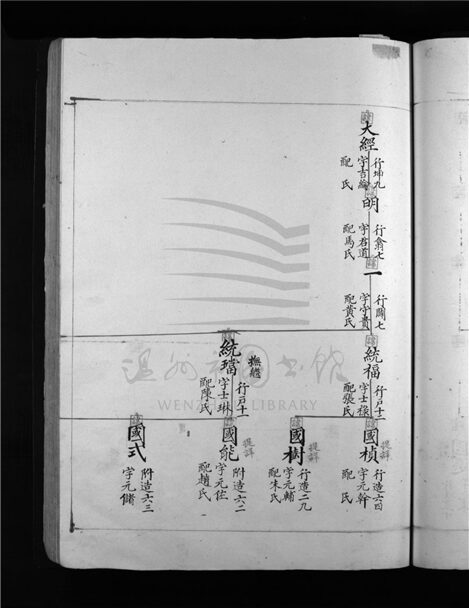 大經
行坤九
字言綸
配 氏
明
行翕七
字君道
配馬氏
一
行闢七
字守貴
配黃氏
統福
行戶十一
字士祿
配張氏
撫繼
統璫
行戶十一
字士琳
配陳氏
提詳
國楨
行造六四
字元幹
配 氏
提詳
國樹
行造二九
字元輔
配朱氏
提詳
國能
附造六二
字元佐
配趙氏
國式
附造六三
字元儲
温州市图书馆
WENZHOU LIBRARY